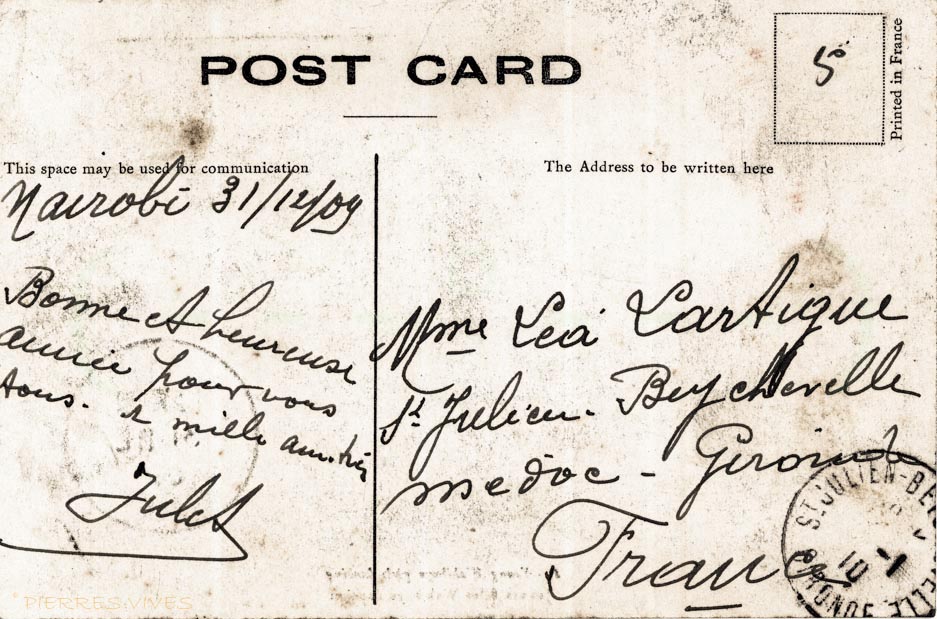 POST CARD
5
Printed in France
This space may be used for communication
Nairobi 31/12/09
Bonne et heureuse
année pour vous
tous. & mille amitiés
The Address to be written here
Mme Léa Lartigue
St Julien. Beychevelle
medoc - Gironde
France
ST JULIEN-BEYCHEVELLE
GIRONDE
PIERRES.VIVES